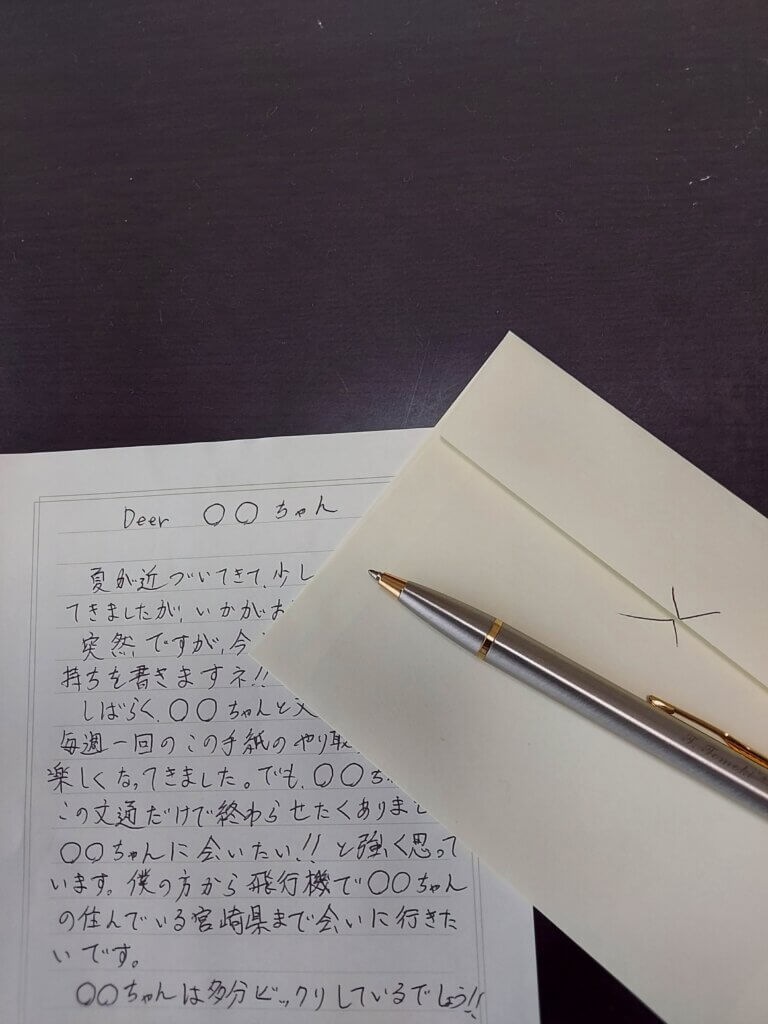 Deer ○○ちゃん
夏が近づいてきて、少し
てきましたが、いかがお
突然ですが、今
持ちを書きますネ!!
しばらく、○○ちゃんと文
毎週一回のこの手紙のやり取
楽しくなってきました。でも、○○ち
この文通だけで終わらせたくありませ
○○ちゃんに会いたい!!と強く思って
います。僕の方から飛行機で○○ちゃん
の住んでいる宮崎県まで会いに行きた
いです。
○○ちゃんは多分ビックリしているでしょう!!